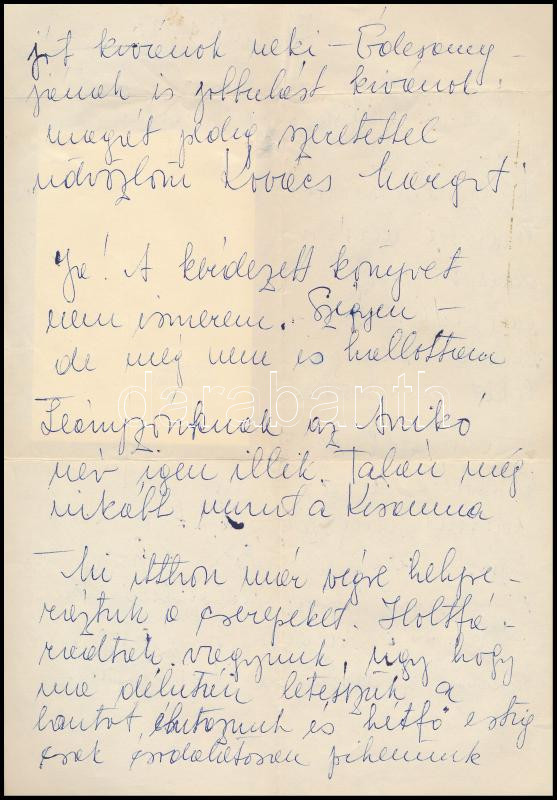 jót kívánok neki – Édesany-
jának is jobbulást kívánok
magát pedig szeretettel
üdvözlöm Kovács Margit

Ja! A kérdezett könyvet
nem ismerem. Szégyen –
de még nem is hallottam
darabanth
Leányzónknak az Anikó
név igen illik. Talán még
inkább, mint a Kisanna
Mi itthon már végre helyre-
ráztuk a cserepeket. Holtfá-
radtak vagyunk, úgy hogy
ma délután letesszük a
lantot, elutazunk és hétfő estig
csak csodálatosan pihenünk